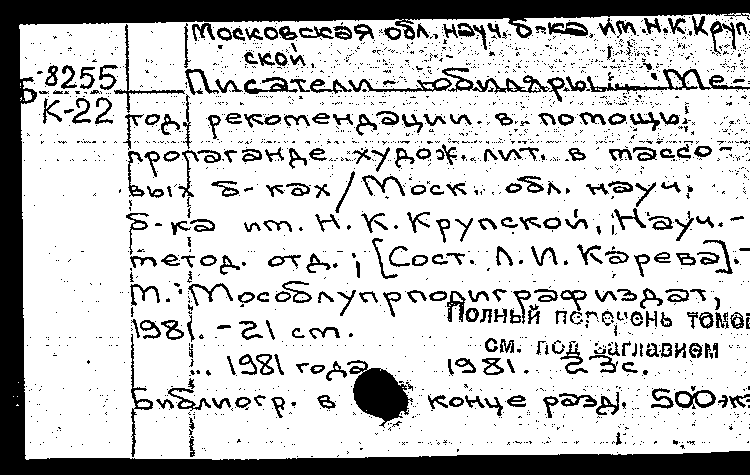 Московская обл. науч. б-ка им. Н.К.Круп-
ской.
Б-8255
К-22
Писатели - юбиляры... : Ме-
тод. рекомендации в помощь
пропаганде худож. лит. в массо-
вых б-ках / Моск. обл. науч.
б-ка им. Н. К. Крупской, Науч.-
метод. отд. ; [Сост. Л. И. Карева]. -
М. : Мособлупрполиграфиздат,
1981. - 21 см.
Полный перечень томов
см. под заглавием
... 1981 года 1981. 23с.
Библиогр. в конце разд. 500 экз